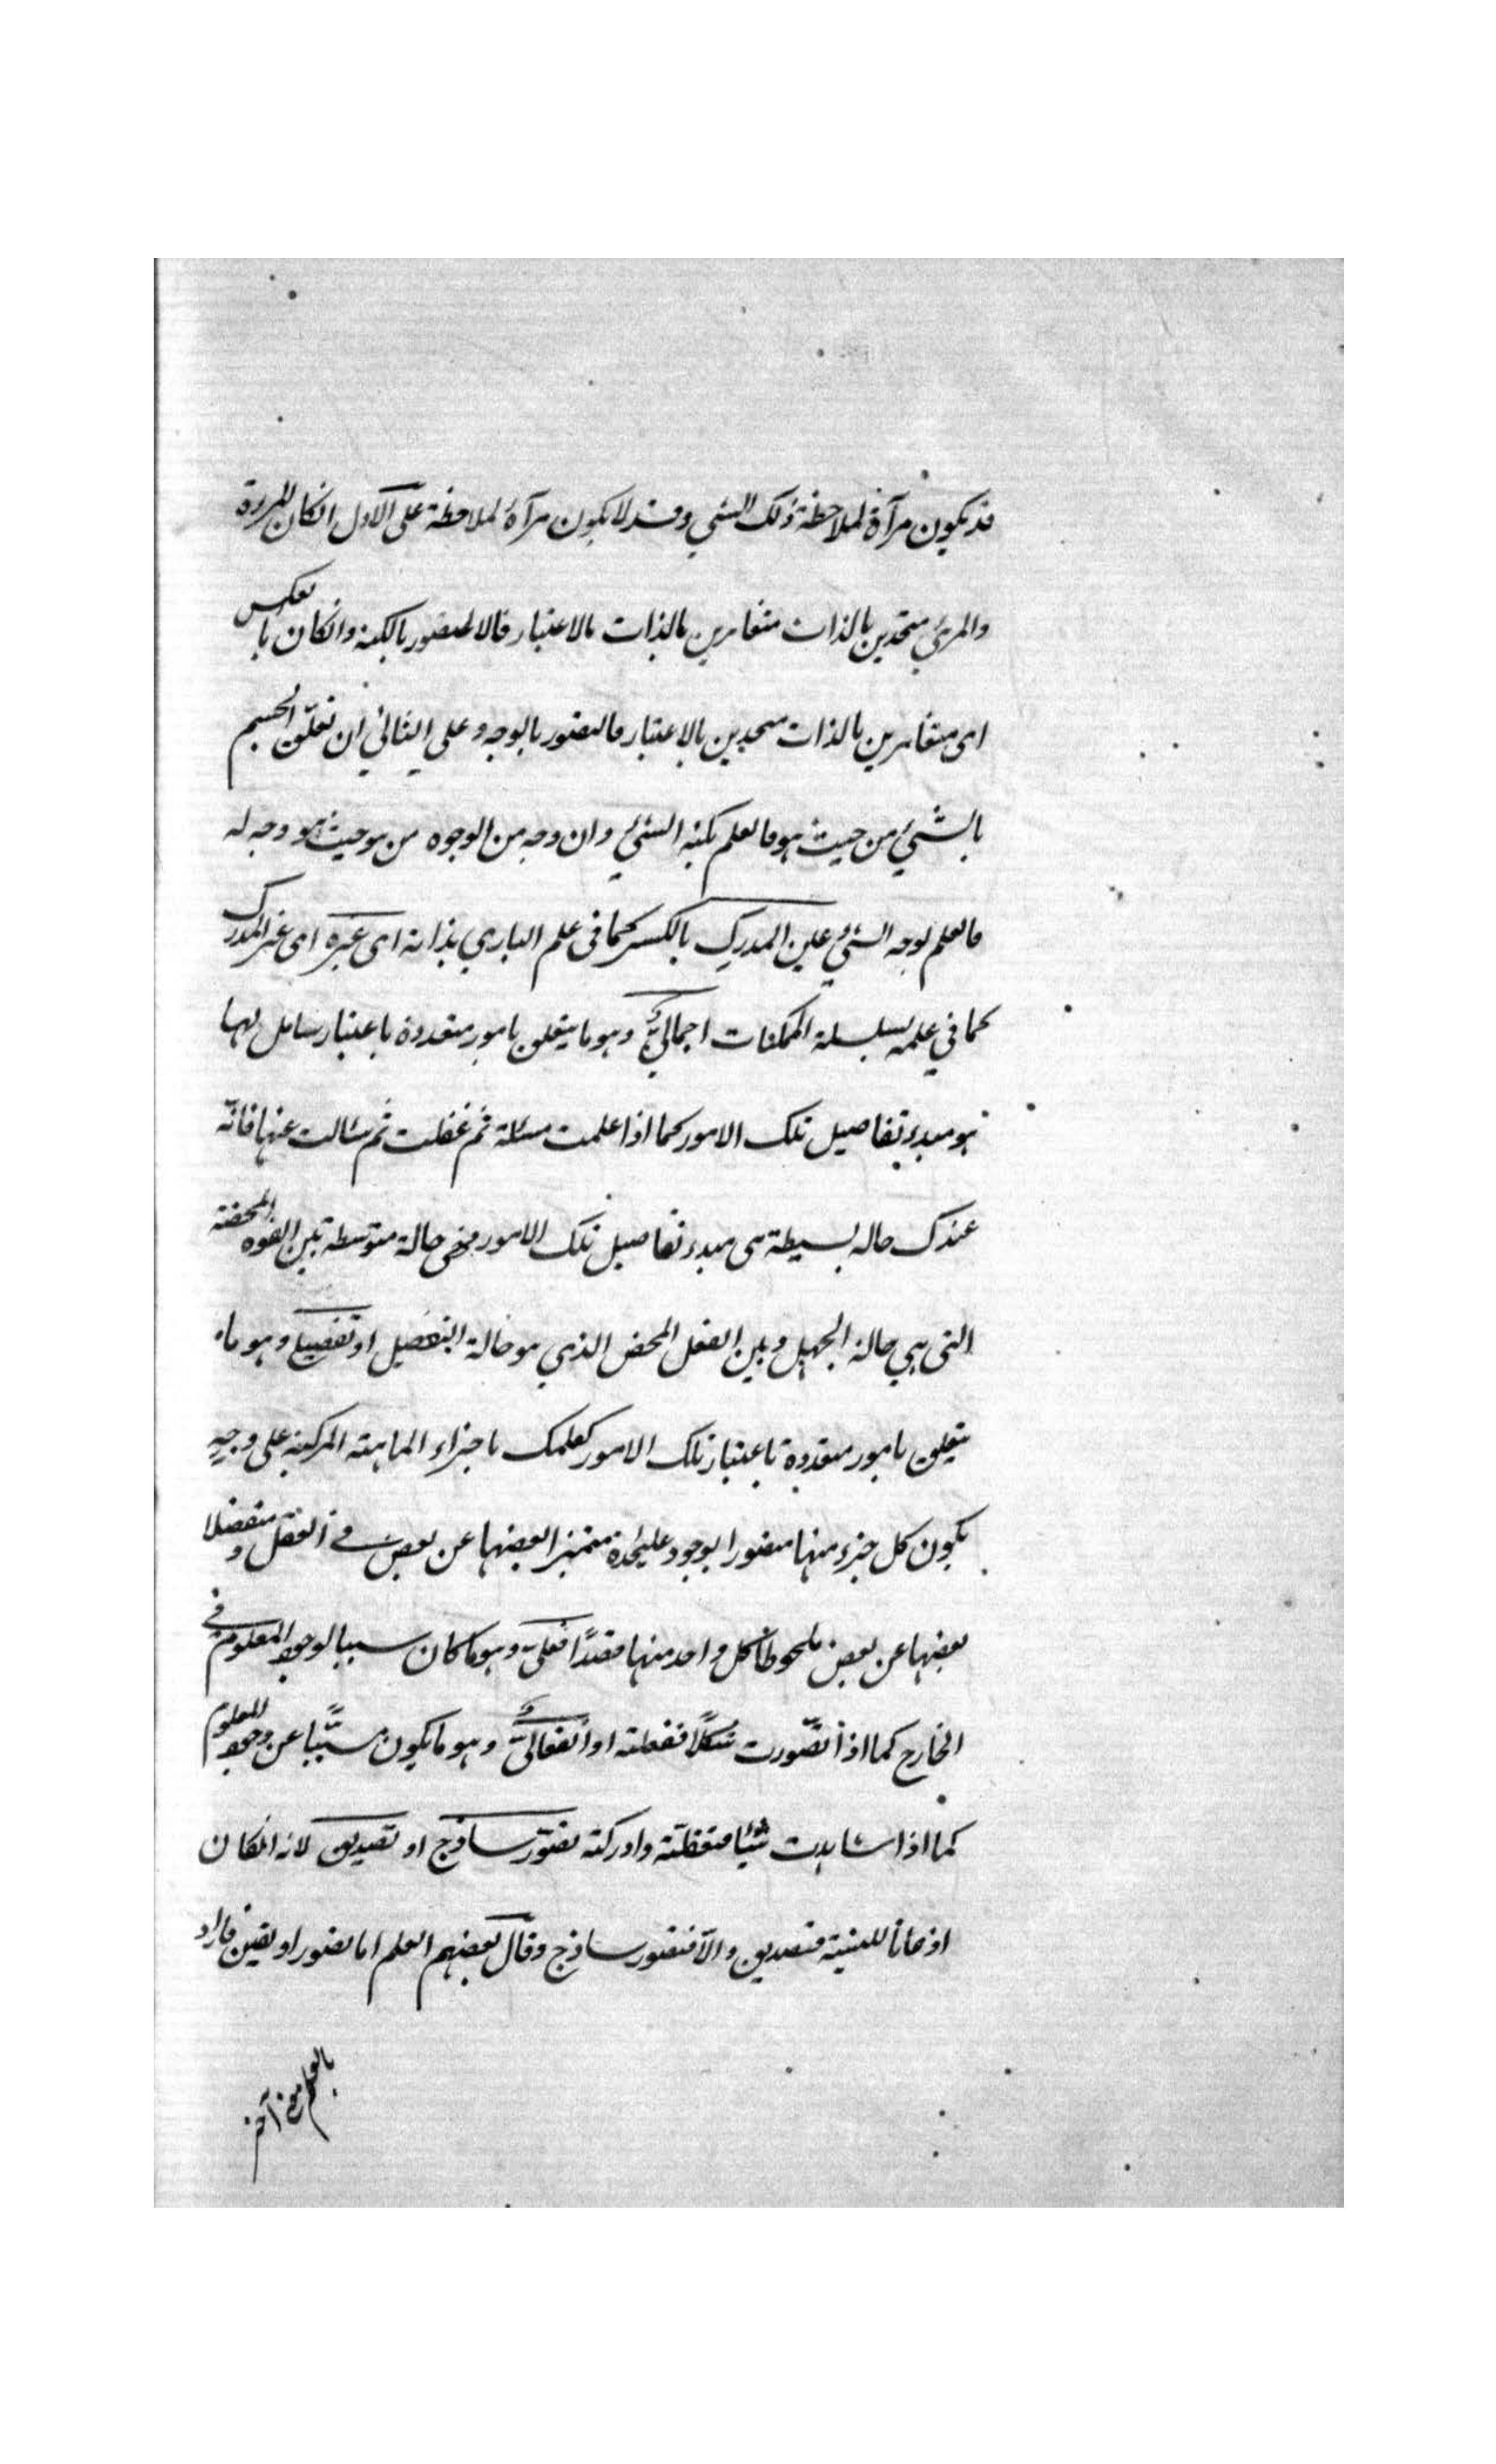 قد يكون مرآة لملاحظة ذلك الشي وقد لا يكون مرآة لملاحظة على الاول انكان المرءة
والمرئي متحدين بالذات متغايرين بالذات بالاعتبار فالالتصور بالكنه وانكان بالعكس
اى متغايرين بالذات متحدين بالاعتبار فالتصور بالوجه وعلى الثاني ان تعلق الجسم
بالشئ من حيث هو فالعلم بكنه الشئ وان وجه من الوجوه من هو حيث هو وجه له
فالعلم لوجه الشئ عين المدرك بالكسر كما فى علم الباري بذاته اى غيره اى غير المدرك
كما في علمه بسلسلة الممكنات اجماليّ وهو ما يتعلق بامور متعددة باعتبار شامل لها
هو مبدء تفاصيل تلك الامور كما اذا علمت مسئلة ثم غفلت ثم سئالت عنها فانّه
عندك حاله بسيطة هى مبدء تفاصيل تلك الامور فهى حالة متوسطه بين القوه المحضة
التى هي حالة الجهل وبين الفعل المحض الذي هو حالة التفصيل او تفصيلى وهو ما
يتعلق بامور متعددة باعتبار تلك الامور كعلمك باجزاء الماهية المركبة على وجهٍ
يكون كل جزء منها متصورا بوجود عليحدة متميزا بعضها عن بعض فى العقل ومنفصلا
بعضها عن بعض ملحوظا كل واحد منها قصدًا فعلىّ وهو ما كان سببا لوجود المعلوم فى
الخارج كما اذا تصّورت شكلًا ففعلته او انفعاليّ وهو ما يكون مسبّبًا عن وجود المعلوم
كما اذا شاهدت شيئا فتعقلته وادركته تصوّر ساذج او تصديق لانه انكان
اذعانا للنسبة فتصديق والّا فتصور ساذج وقال بعضهم العلم اما تصور او يقين فاراد
بالعلم آخر